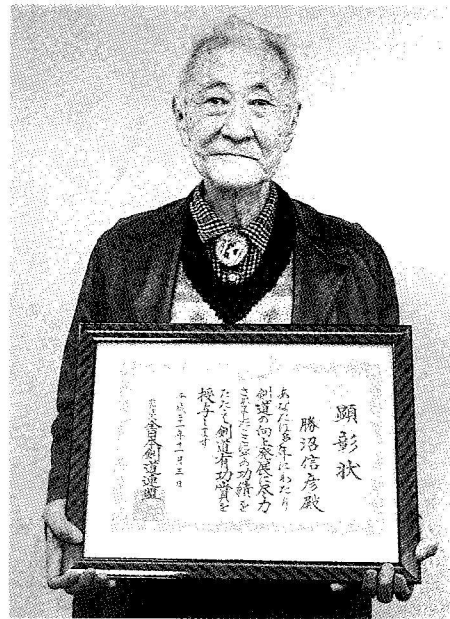 顕彰状
勝沼信彦殿
あなたは多年にわたり
剣道の向上発展に尽力
されましたここにその功績を
たたえ剣道有功賞を
授与します
平成二十一年十一月三日
全日本剣道連盟